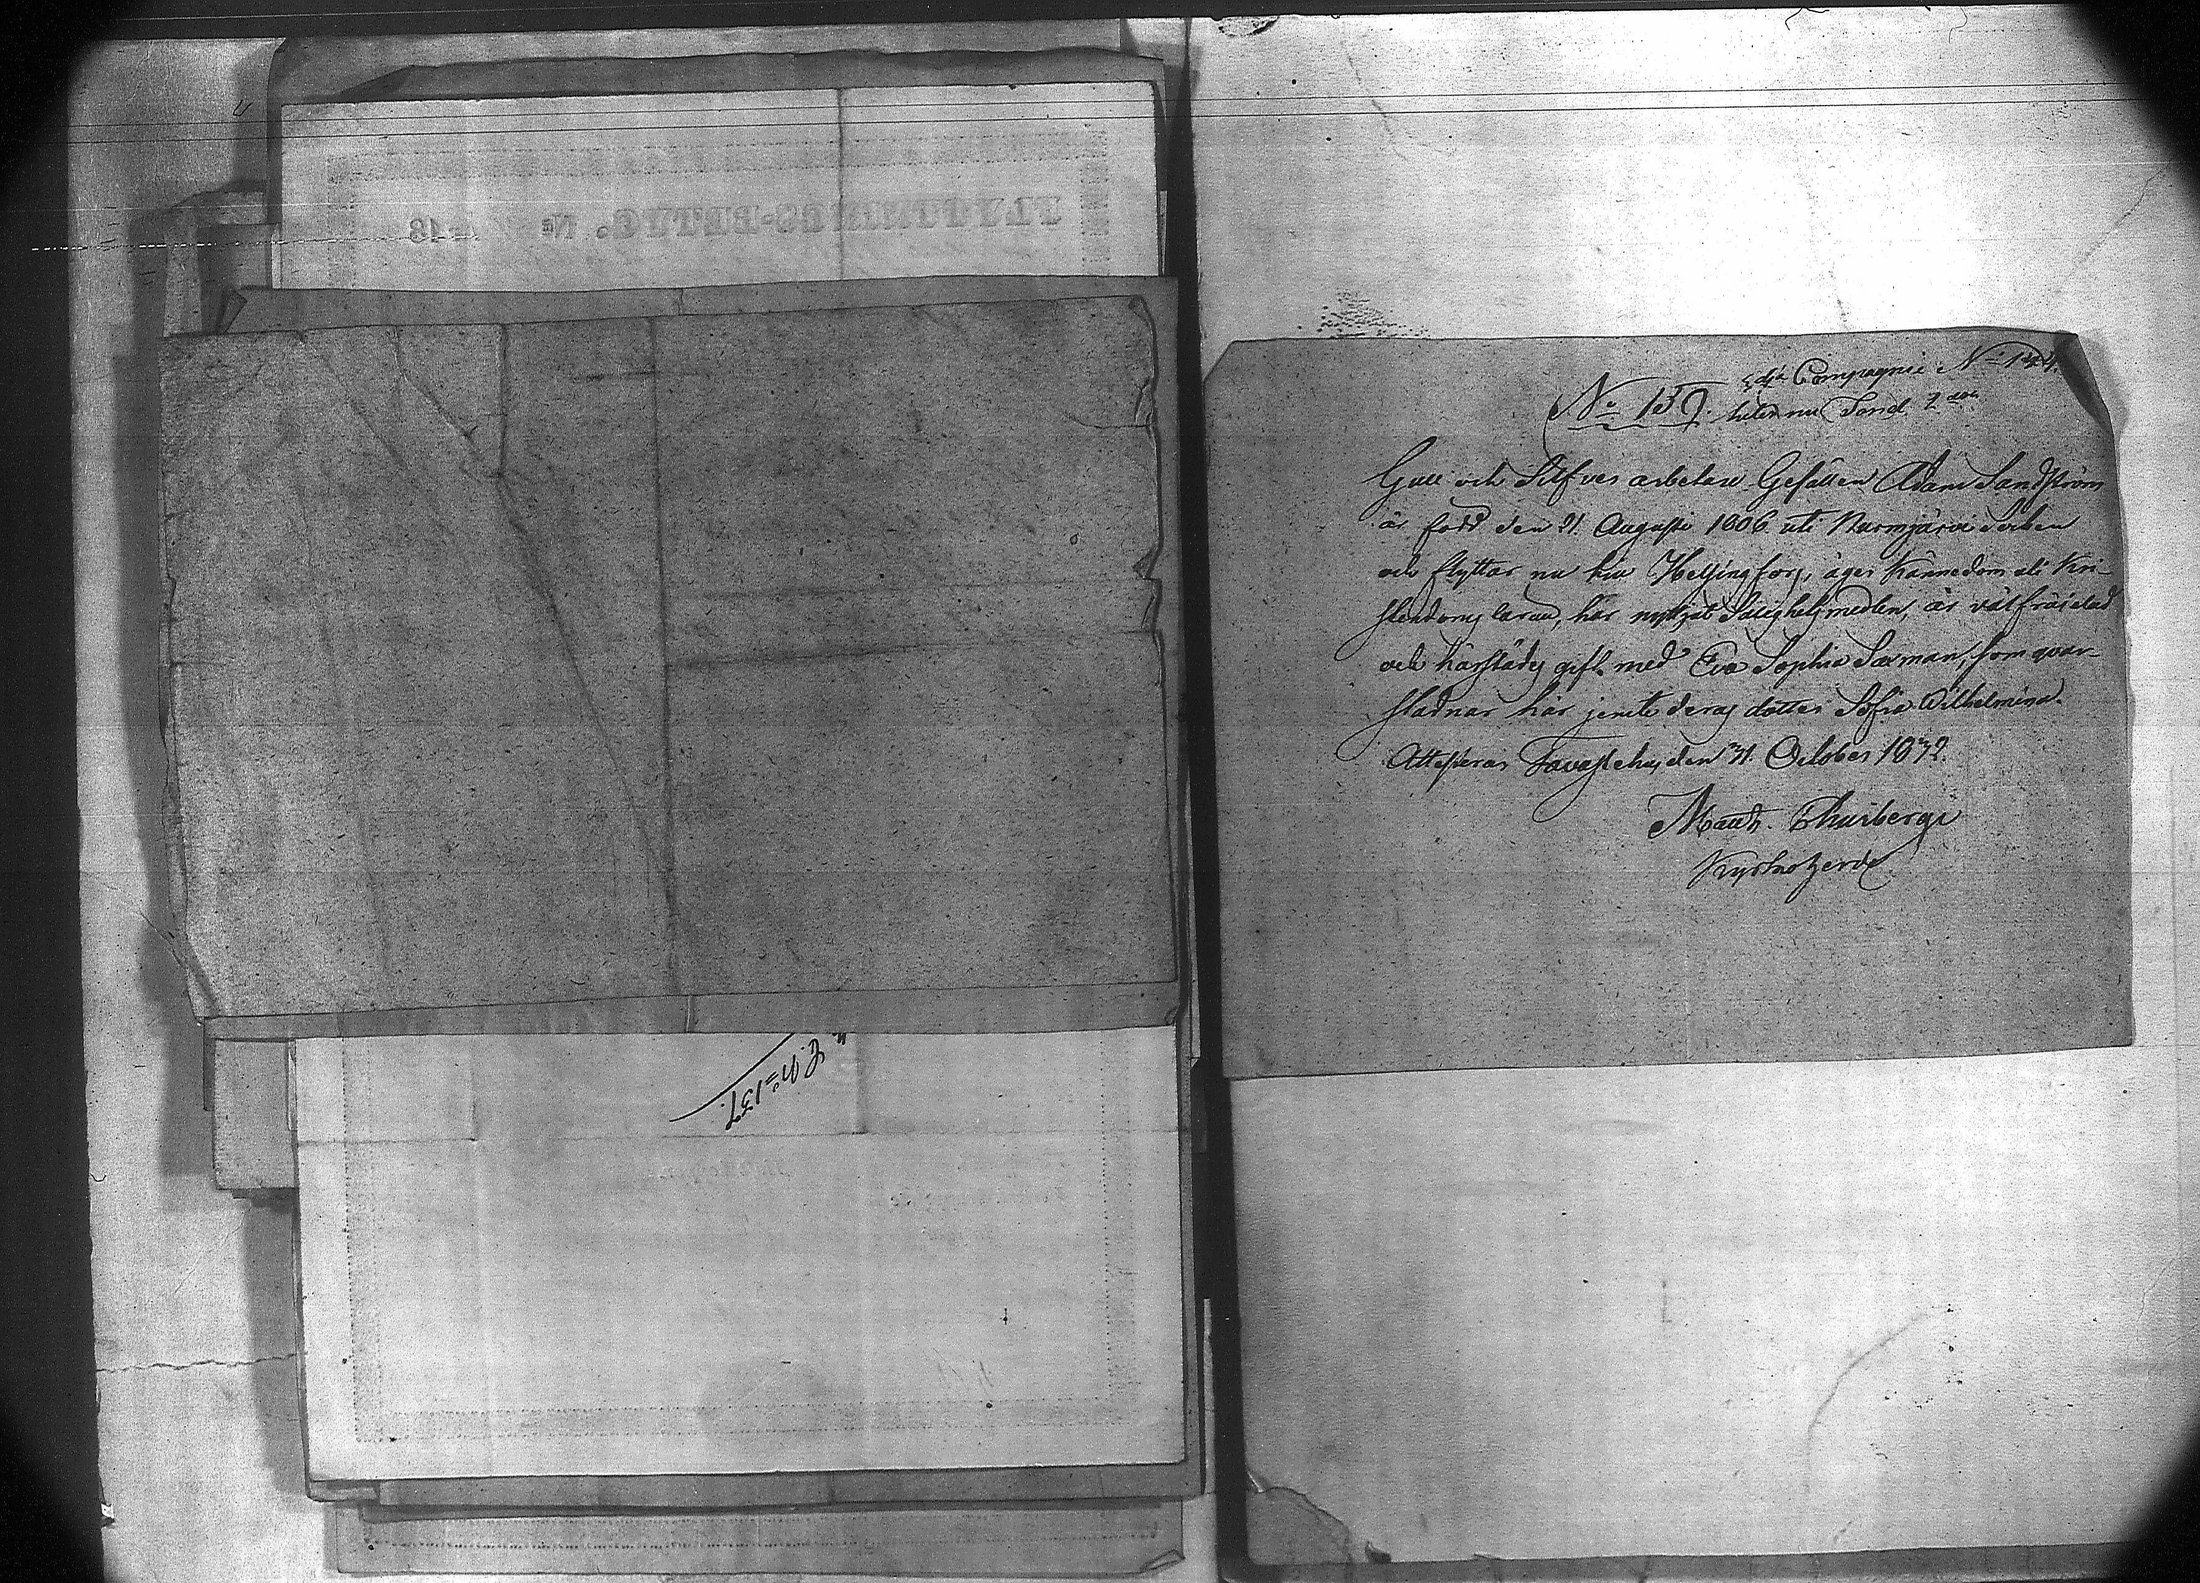 FLYTTNINGS-BETYG. No 18
No 137.
No 139.
Compagnie No 144.
Gull och Silfver arbetare Gesällen Adam Sandström
är född den 21 Augusti 1806 uti Nurmjärvi Socken
och flyttar nu till Helsingfors, äger kännedom uti Kri-
stendoms läran, har nyttjat Salighets medlen, är väl fräjdad
och härstädes gift med Eva Sophia Saxman, som qvar-
stadnar här jemte deras dotter Sofia Wilhelmina.
Attesteras Tavastehus den 31 October 1832.
Math.